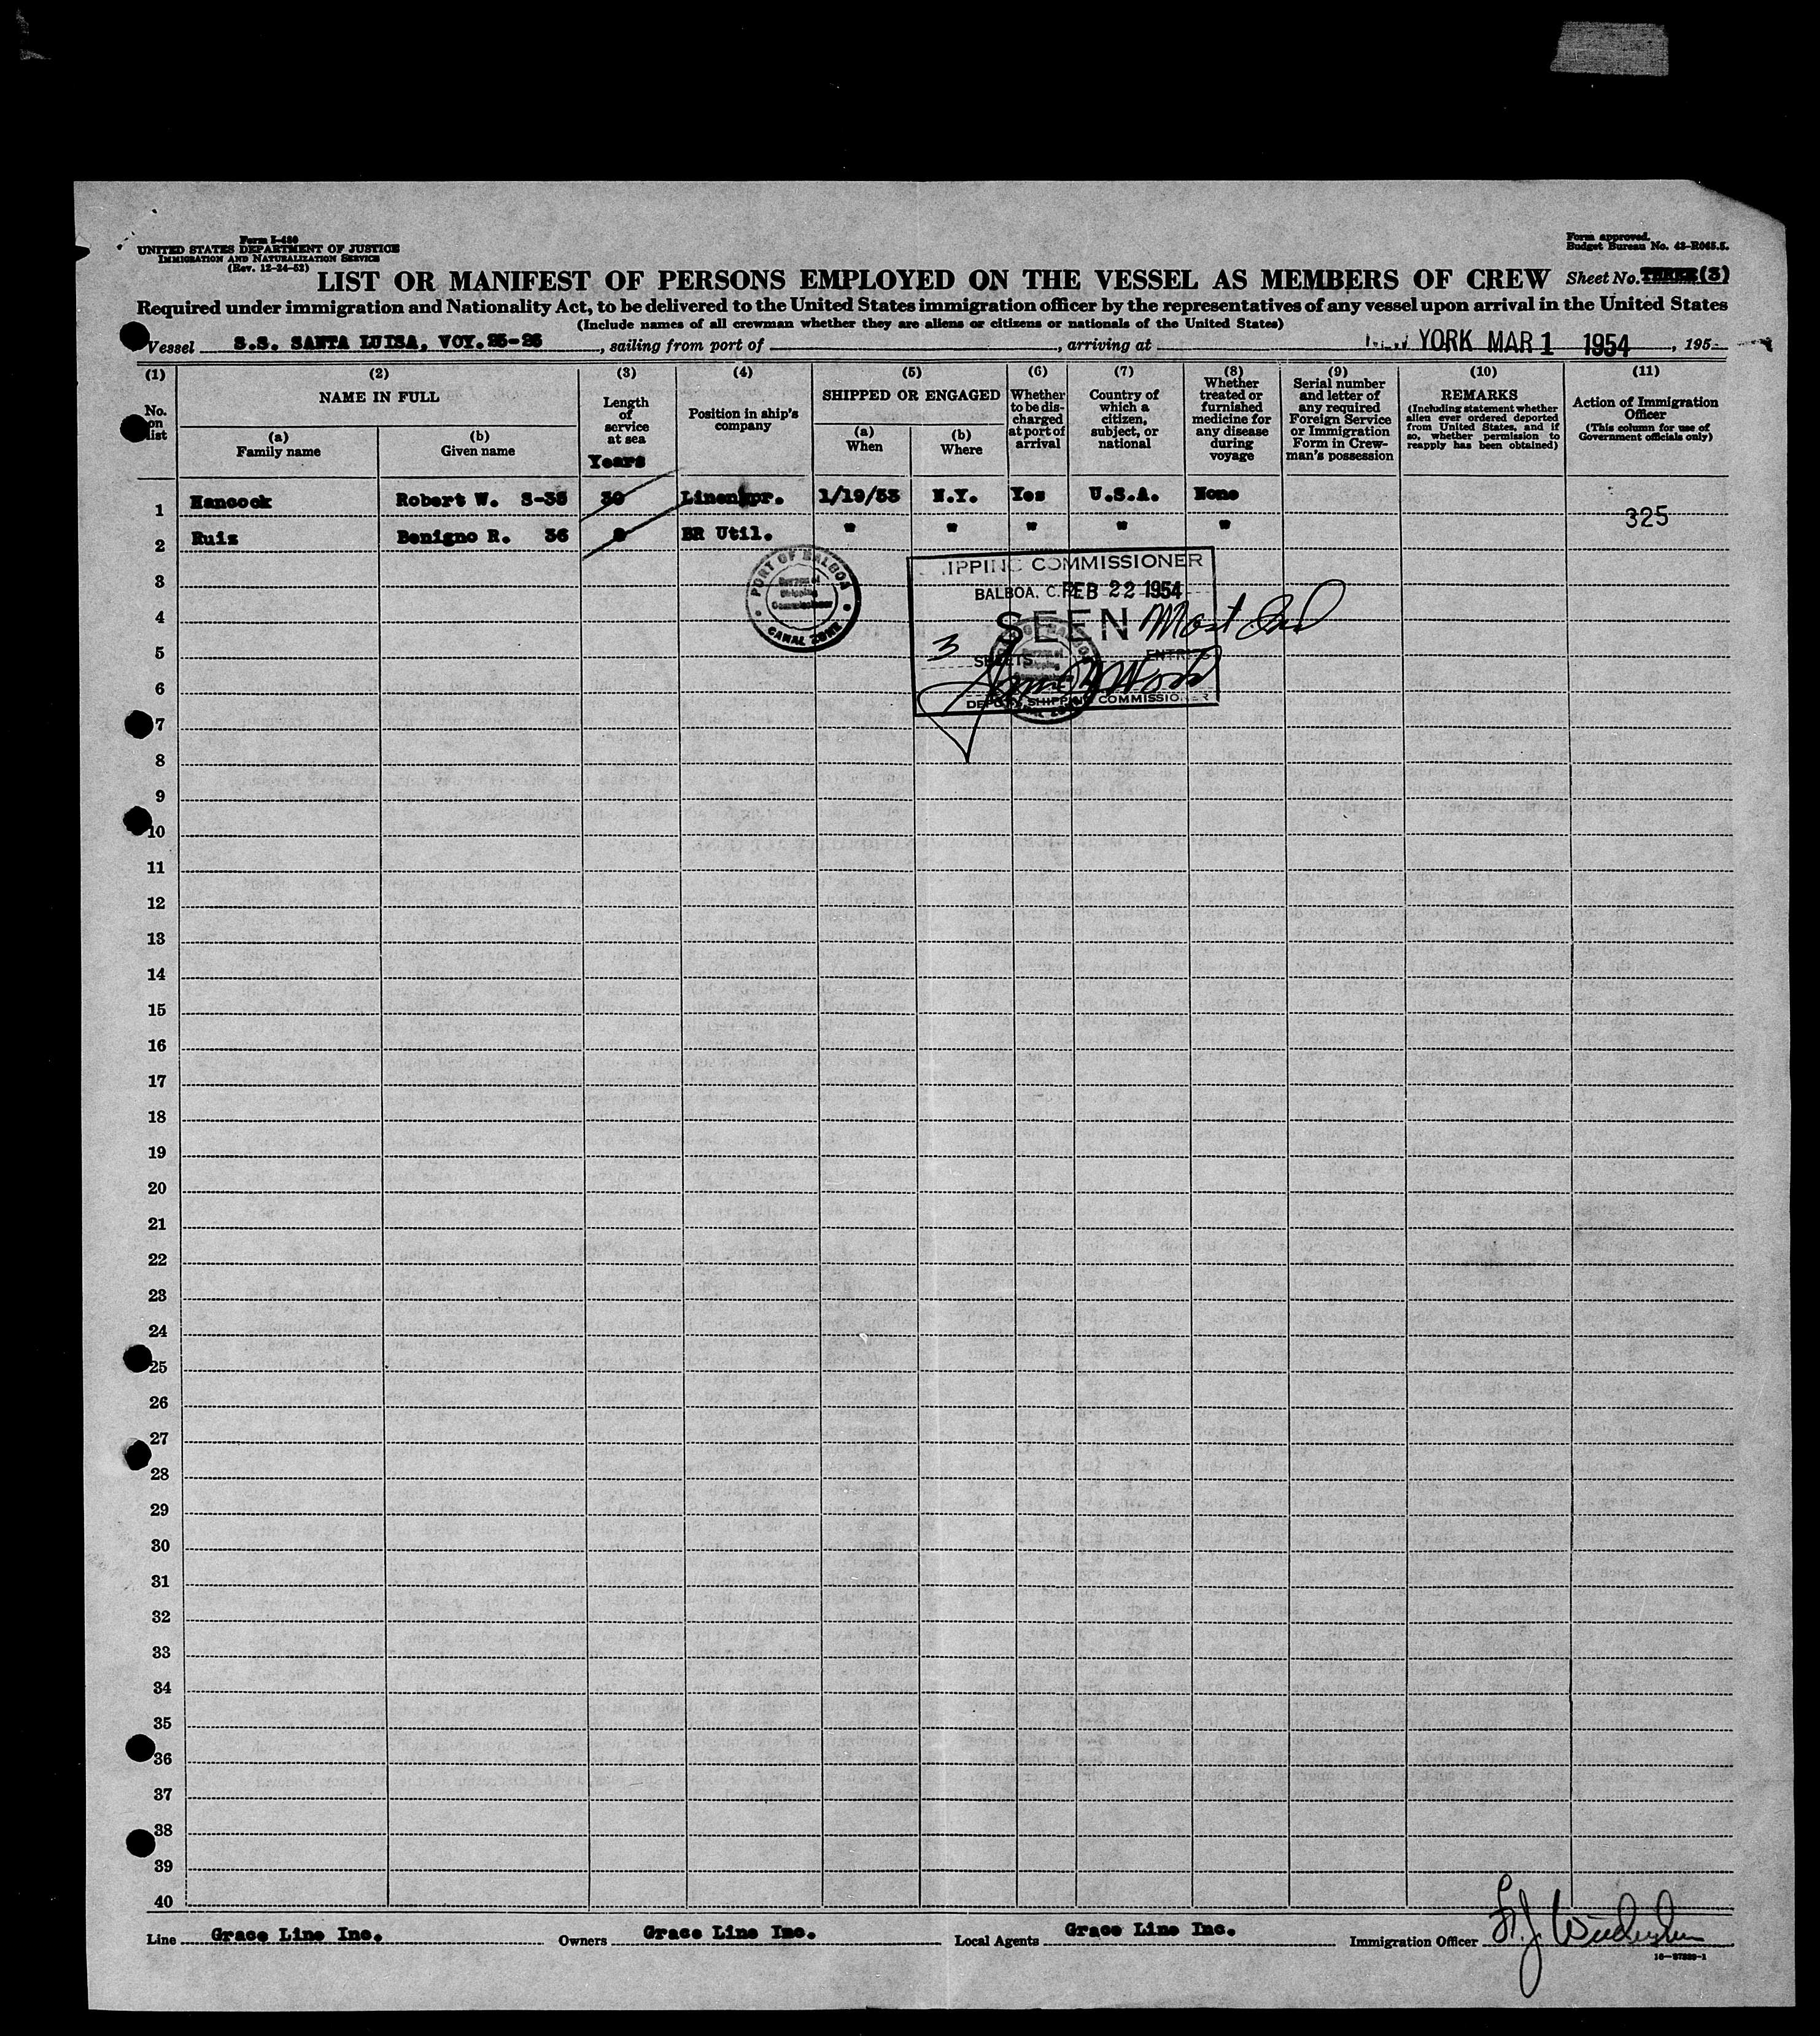 Form I-480
UNITED STATES DEPARTMENT OF JUSTICE
IMMIGRATION AND NATURALIZATION SERVICE
(Rev. 12-24-52)
Form approved.
Budget Bureau No. 43-R065.5.
LIST OR MANIFEST OF PERSONS EMPLOYED ON THE VESSEL AS MEMBERS OF CREW Sheet No. THREE (3)
Required under immigration and Nationality Act, to be delivered to the United States immigration officer by the representatives of any vessel upon arrival in the United States
(Include names of all crewman whether they are aliens or citizens or nationals of the United States)
Vessel S.S. SANTA LUISA, VOY. 25-26, sailing from port of , arriving at YORK MAR 1 1954, 195
(1) (2) (3) (4) (5) (6) (7) (8) (9) (10) (11)
No. on list
NAME IN FULL
(a) Family name
(b) Given name
Length of service at sea
Years
Position in ship's company
SHIPPED OR ENGAGED
(a) When
(b) Where
Whether to be discharged at port of arrival
Country of which a citizen, subject, or national
Whether treated or furnished medicine for any disease during voyage
Serial number and letter of any required Foreign Service or Immigration Form in Crewman's possession
REMARKS
(Including statement whether alien ever ordered deported from United States, and if so, whether permission to reapply has been obtained)
Action of Immigration Officer
(This column for use of Government officials only)
1 Hancock Robert W. S-35 30 Linenkpr. 1/19/53 N.Y. Yes U.S.A. None
325
2 Ruiz Benigno R. 36 BR Util. " " " " "
PORT OF BALBOA
Bureau of
Shipping
Commissioner
CANAL ZONE
IPPING COMMISSIONER
BALBOA, C.Z. FEB 22 1954
SEEN
3 SHEETS ENTRIES
DEPUTY SHIPPING COMMISSIONER
3
4
5
6
7
8
9
10
11
12
13
14
15
16
17
18
19
20
21
22
23
24
25
26
27
28
29
30
31
32
33
34
35
36
37
38
39
40
Line Grace Line Inc. Owners Grace Line Inc. Local Agents Grace Line Inc. Immigration Officer